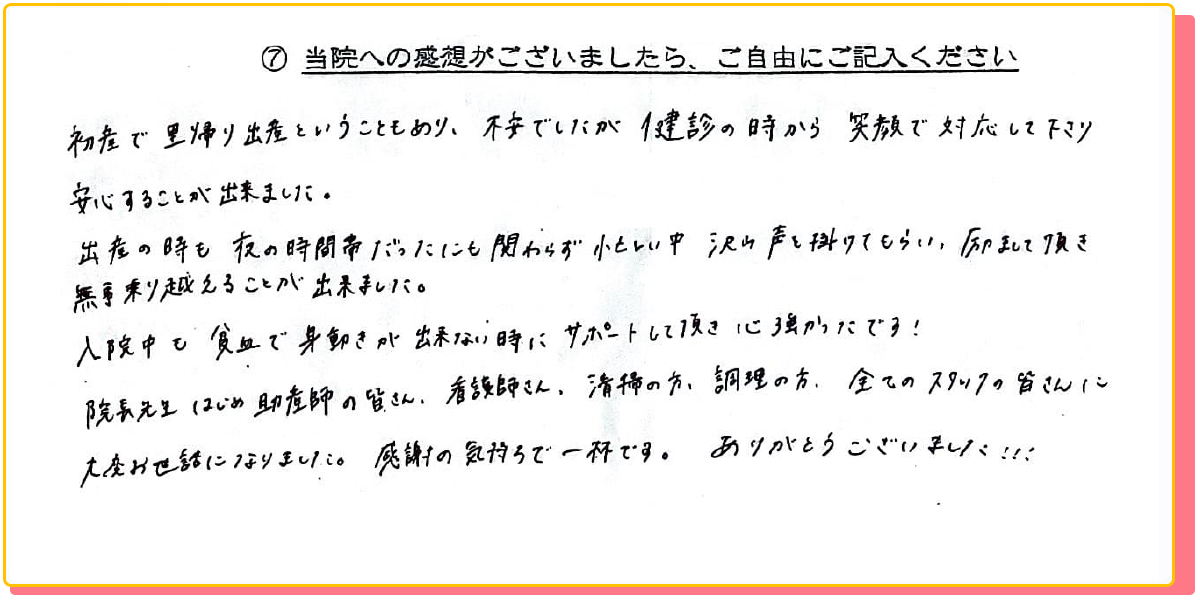 ⑦ 当院への感想がございましたら、ご自由にご記入ください
初産で里帰り出産ということもあり、不安でしたが 健診の時から 笑顔で対応して下さり
安心することが出来ました。
出産の時も 夜の時間帯だったにも関わらず 忙しい中 沢山声を掛けてもらい、励まして頂き
無事乗り越えることが出来ました。
入院中も 貧血で身動きが出来ない時に サポートして頂き 心強かったです!
院長先生はじめ 助産師の皆さん、看護師さん、清掃の方、調理の方、全てのスタッフの皆さんに
大変お世話になりました。 感謝の気持ちで一杯です。 ありがとうございました!!!